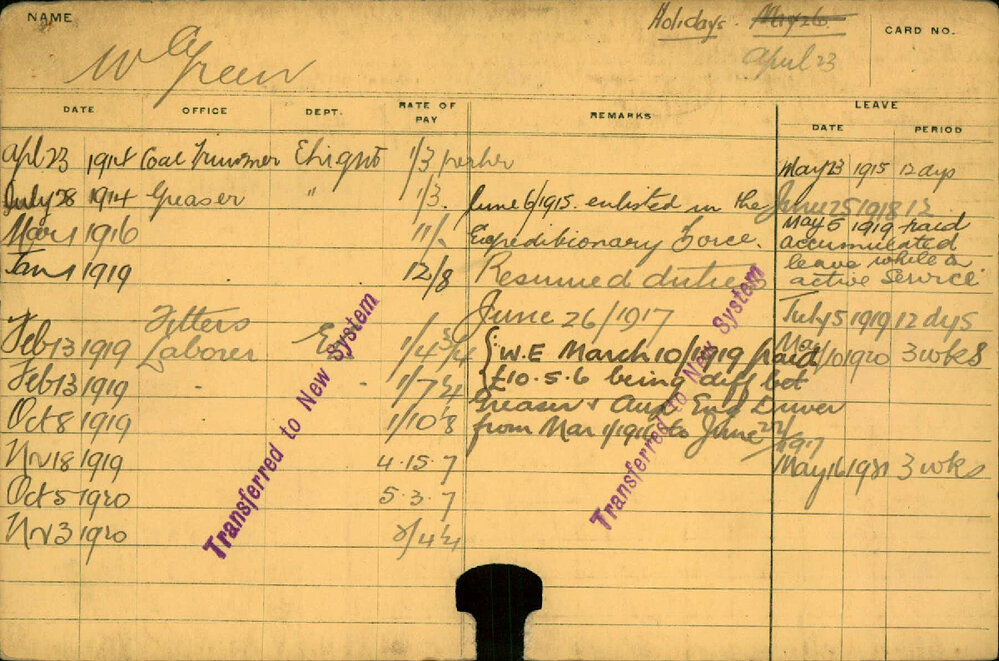 NAME
Holidays. May 26
CARD NO.
April 23
W Green
DATE OFFICE DEPT. RATE OF PAY REMARKS LEAVE
DATE PERIOD
Apl 23 1914 Coal Trimmer Elight 1/3 per hr May 23 1915 12 days
July 28 1914 Greaser " 1/3. June 6/1915. enlisted in the June 25 1918 12
Mar 1 1916 11/- Expeditionary Force. May 5 1919 paid
accumulated
Jan 1 1919 12/8 Resumed duties leave while on
active Service
June 26/1917 July 5 1919 12 dys
Feb 13 1919 Fitters Laborer 1/4 3/4 { W.E March 10/1919 paid 10 1920 3 wks
Feb 13 1919 1/7 1/4 { £10.5.6 being diff bet
Oct 8 1919 1/10 Greaser & Aux Eng Driver
from Mar 1/1916 to June 24/
1917
Nov 18 1919 4.15.7 May 16 1921 3 wks
Oct 5 1920 5.3.7
Nov 3 1920 2/4 1/4
Transferred to New System
Transferred to New System